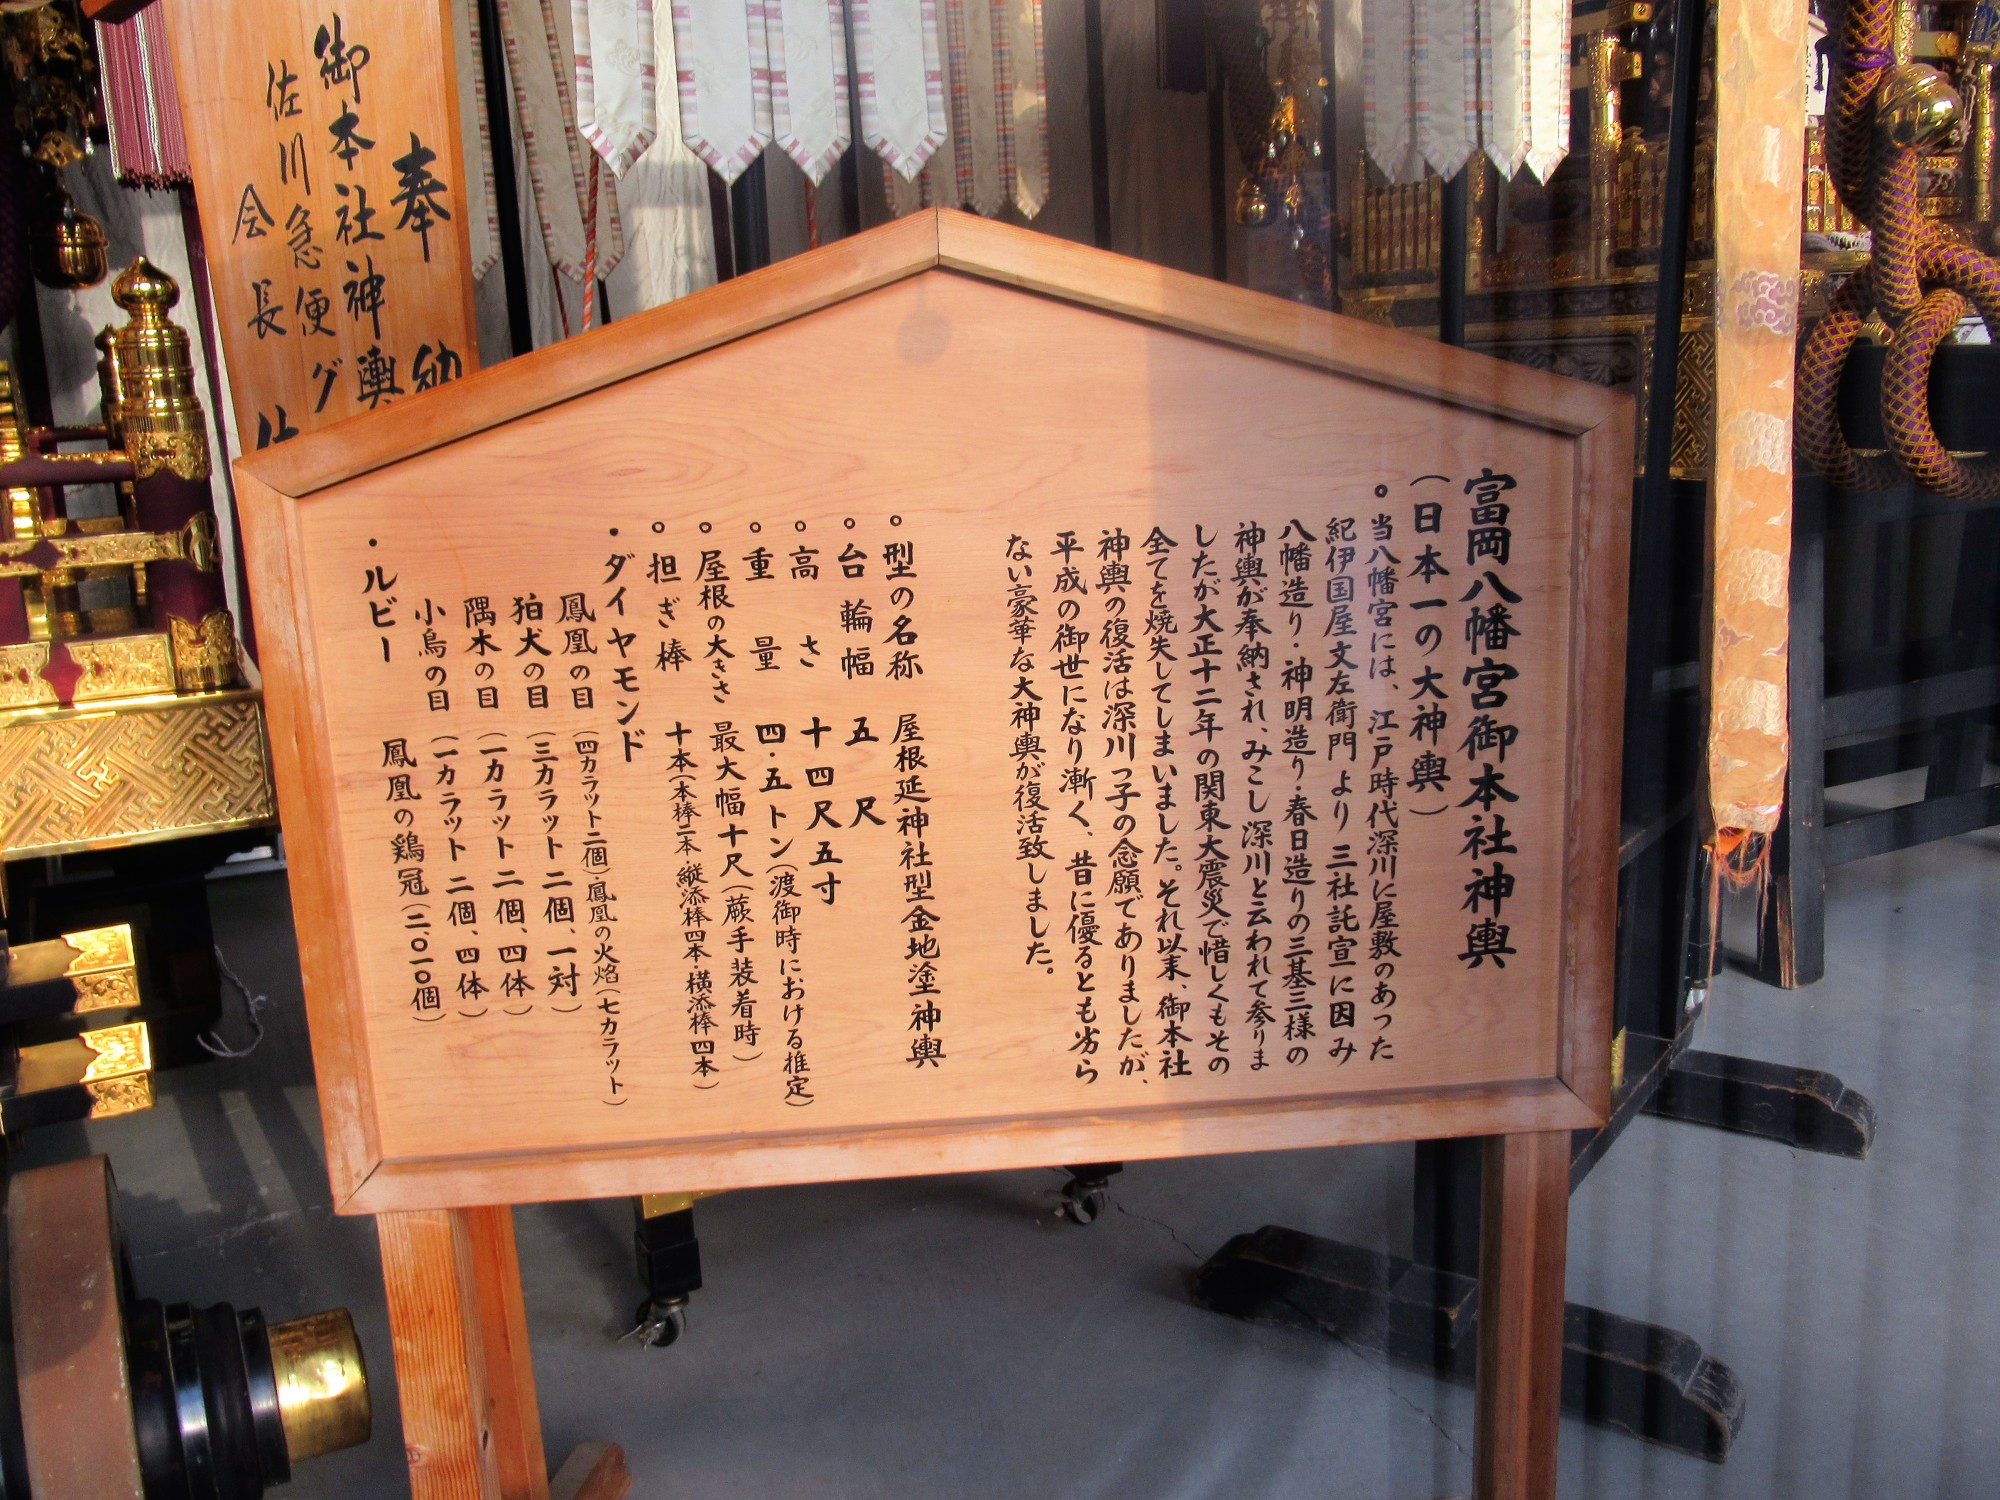 富岡八幡宮御本社神輿
(日本一の大神輿)
○当八幡宮には、江戸時代深川に屋敷のあった
紀伊国屋文左衛門より三社託宣に因み
八幡造り・神明造り・春日造りの三基三様の
神輿が奉納され、みこし深川と云われて参りま
したが大正十二年の関東大震災で惜しくもその
全てを焼失してしまいました。それ以来、御本社
神輿の復活は深川っ子の念願でありましたが、
平成の御世になり漸く、昔に優るとも劣ら
ない豪華な大神輿が復活致しました。
○型の名称 屋根延神社型金地塗神輿
○台輪幅 五尺
○高さ 十四尺五寸
○重量 四・五トン(渡御時における推定)
○屋根の大きさ 最大幅十尺(蕨手装着時)
○担ぎ棒 十本(本棒二本・縦添棒四本・横添棒四本)
・ダイヤモンド
鳳凰の目(四カラット二個)・鳳凰の火焰(七カラット)
狛犬の目(三カラット二個、一対)
隅木の目(一カラット二個、四体)
小鳥の目(一カラット二個、四体)
・ルビー 鳳凰の鶏冠(二、〇一〇個)
奉納
御本社神輿
佐川急便グ
会長 佐